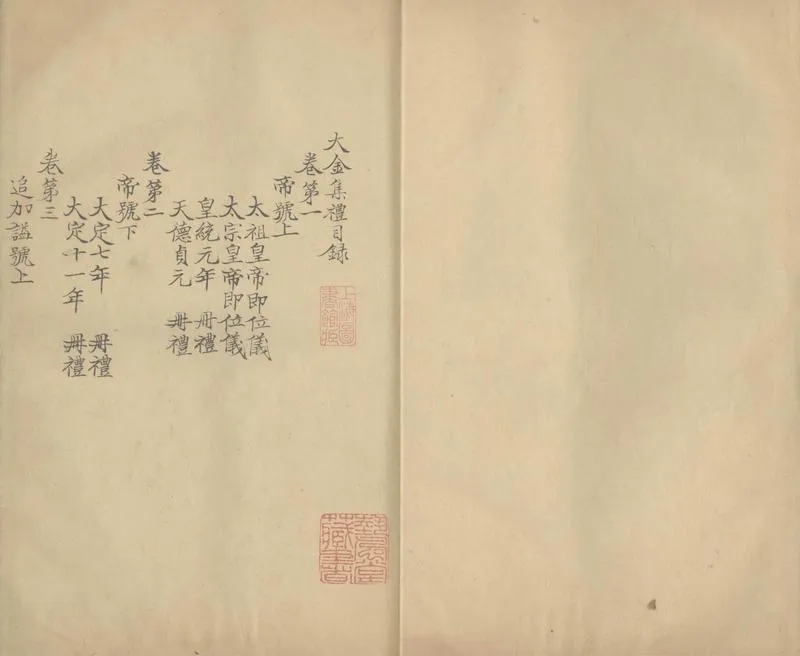 大金集禮目録
卷第一
帝號上
太祖皇帝即位儀
太宗皇帝即位儀
皇統元年 冊禮
天德貞元 冊禮
卷第二
帝號下
大定七年 冊禮
大定十一年 冊禮
卷第三
追加諡號上
上海圖
書館藏
藏書